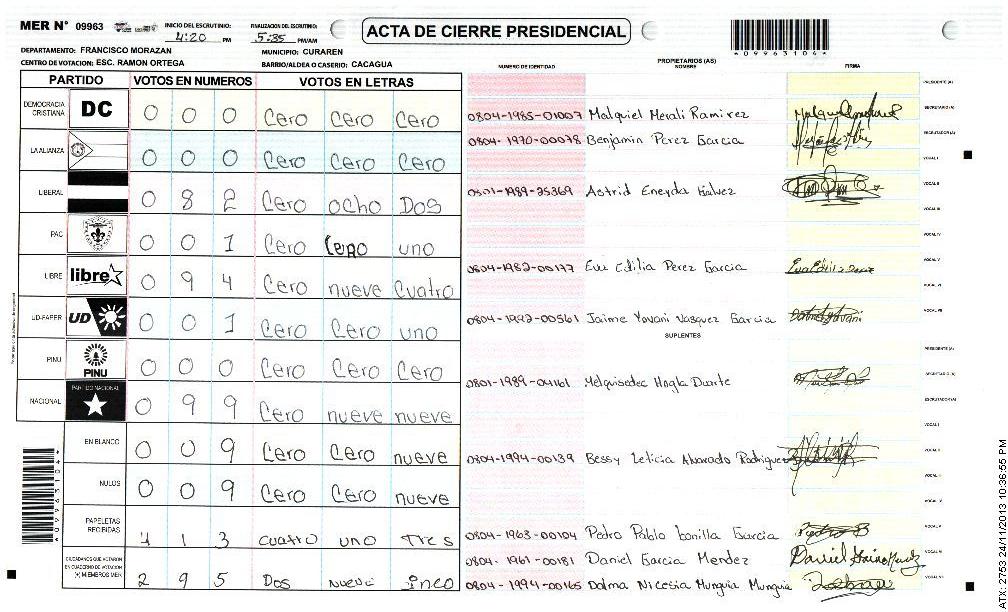 MER N° 09963 INICIO DEL ESCRUTINIO: 4:20 PM FINALIZACION DEL ESCRUTINIO: 5:35 PM/AM
ACTA DE CIERRE PRESIDENCIAL
*09963104*
DEPARTAMENTO: FRANCISCO MORAZAN MUNICIPIO: CURAREN
CENTRO DE VOTACION: ESC. RAMON ORTEGA BARRIO/ALDEA O CASERIO: CACAGUA
PARTIDO VOTOS EN NUMEROS VOTOS EN LETRAS
DEMOCRACIA CRISTIANA DC 0 0 0 Cero Cero Cero
LA ALIANZA 0 0 0 Cero Cero Cero
LIBERAL 0 8 2 Cero ocho Dos
PAC 0 0 1 Cero Cero uno
LIBRE libre 0 9 4 Cero nueve Cuatro
UD-FAPER UD 0 0 1 Cero Cero uno
PINU PINU 0 0 0 Cero Cero Cero
NACIONAL PARTIDO NACIONAL 0 9 9 Cero nueve nueve
EN BLANCO 0 0 9 Cero Cero nueve
NULOS 0 0 9 Cero Cero nueve
PAPELETAS RECIBIDAS 4 1 3 cuatro uno Tres
CIUDADANOS QUE VOTARON EN CUADERNO DE VOTACION (+) MIEMBROS MER 2 9 5 Dos Nueve inco
*09963104*
PROPIETARIOS (AS)
NUMERO DE IDENTIDAD NOMBRE FIRMA
PRESIDENTE (A)
0804-1985-01007 Malquiel Merali Ramirez SECRETARIO (A)
0804-1970-00078 Benjamin Perez Garcia ESCRUTADOR (A)
VOCAL I
0501-1989-25369 Astrid Eneyda Galvez VOCAL II
VOCAL III
VOCAL IV
0804-1982-00177 Eva Edilia Perez Garcia VOCAL V
VOCAL VI
0804-1992-00561 Jaime Yovani Vasquez Garcia VOCAL VII
SUPLENTES
PRESIDENTE (A)
0801-1989-04161 Melquisedec Duarte SECRETARIO (A)
ESCRUTADOR (A)
VOCAL I
0804-1994-00139 Bessy Leticia Alvarado Rodriguez VOCAL II
0804-1963-00104 Pedro Pablo bonilla Garcia VOCAL V
0804-1961-00181 Daniel Garcia Mendez VOCAL VI
0804-1994-00165 Dalma Nicesia Munguia Munguia VOCAL VII
ATX: 2753 24/11/2013 10:36:55 PM